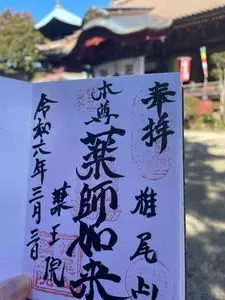 奉拝
雄尾山
本尊
薬師如来
令和六年三月三日
薬王院